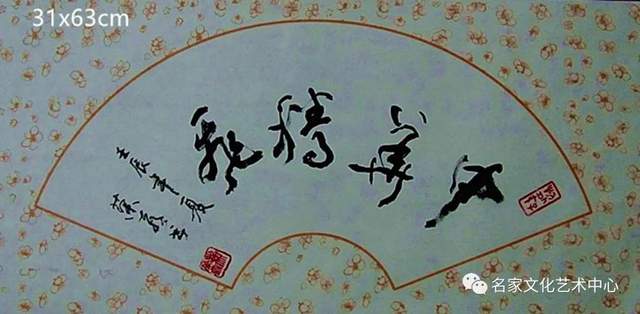 31x63cm
中華騰飛
壬辰年夏
名家文化艺术中心